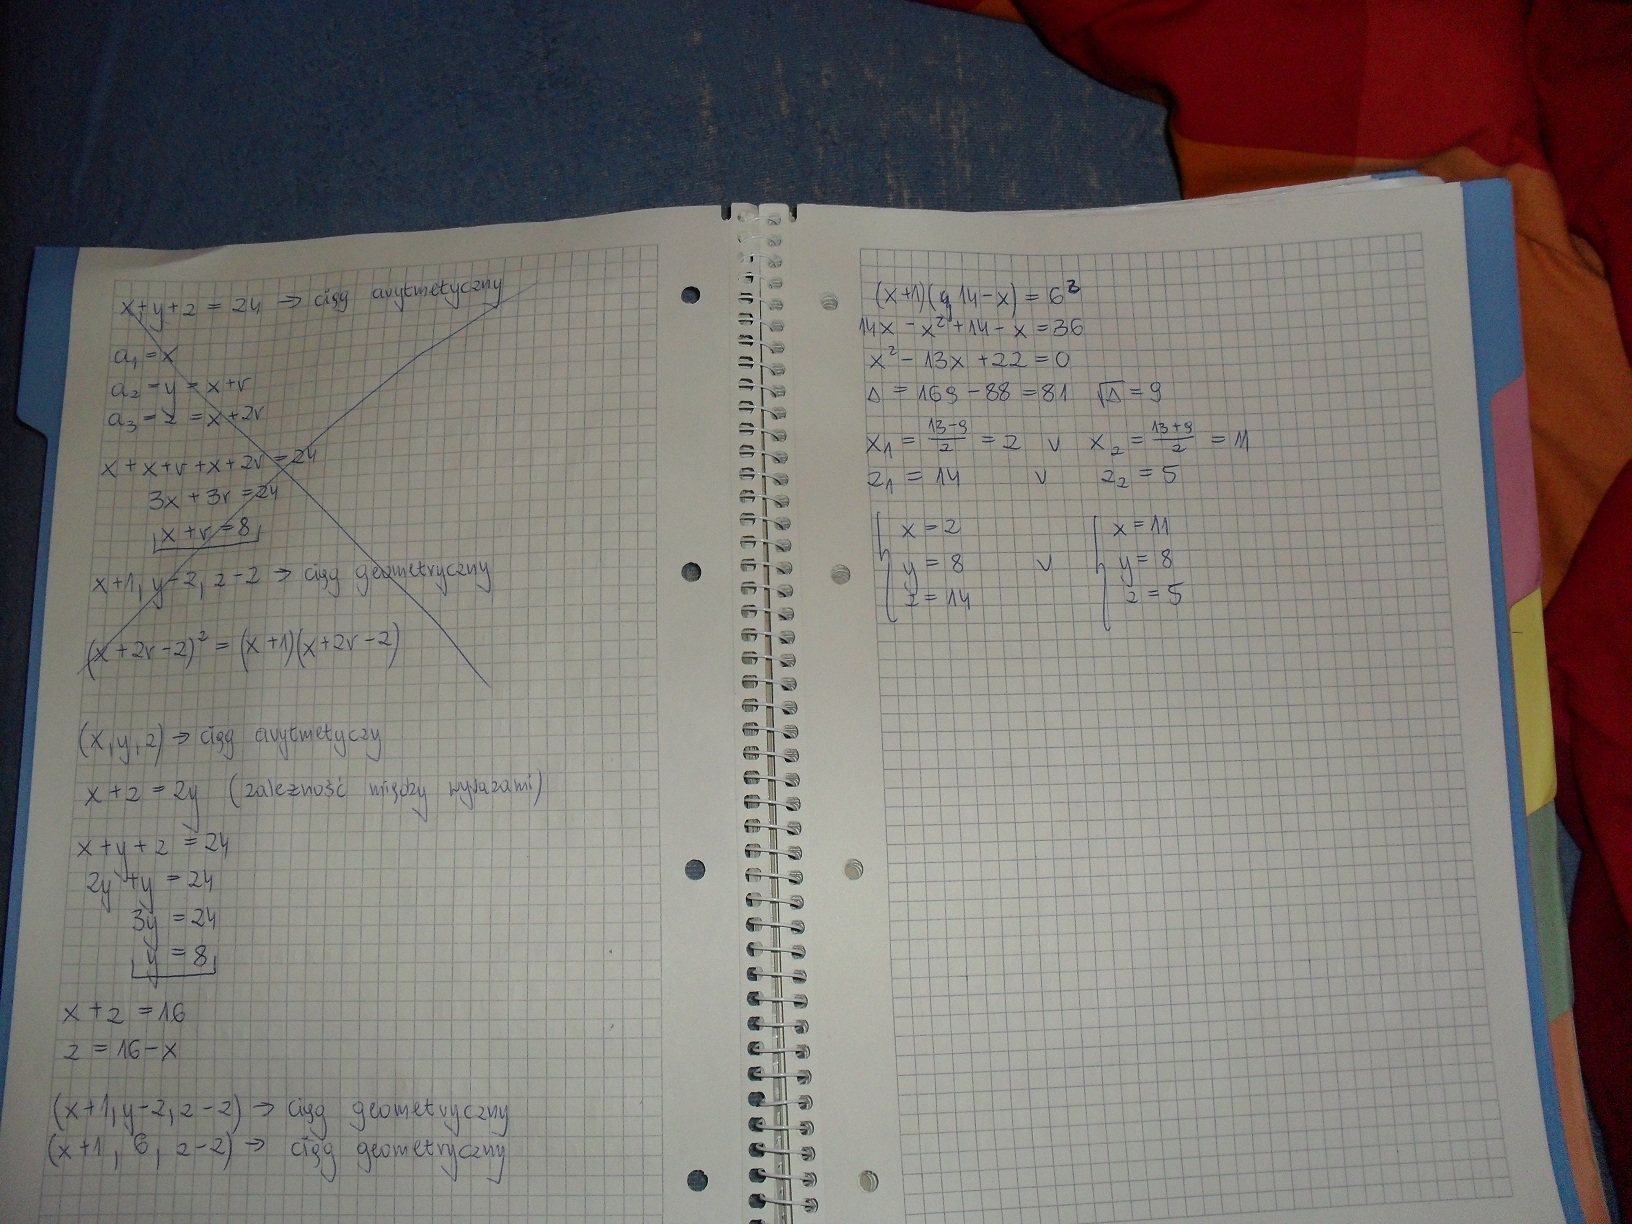 x+y+z = 24 → ciąg arytmetyczny
a₁ = x
a₂ = y = x+r
a₃ = z = x+2r
x + x+r + x+2r = 24
3x + 3r = 24
x + r = 8
x+1, y-2, z-2 → ciąg geometryczny
(x+2r-2)² = (x+1)(x+2r-2)
(x, y, z) → ciąg arytmetyczy
x+z = 2y (zależność między wyrazami)
x+y+z = 24
2y+y = 24
3y = 24
y = 8
x+z = 16
z = 16-x
(x+1, y-2, z-2) → ciąg geometryczny
(x+1, 6, z-2) → ciąg geometryczny
(x+1)(14-x) = 6²
14x - x² + 14 - x = 36
x² - 13x + 22 = 0
Δ = 169 - 88 = 81 √Δ = 9
x₁ = (13-9)/2 = 2 v x₂ = (13+9)/2 = 11
z₁ = 14 v z₂ = 5
x = 2 x = 11
y = 8 v y = 8
z = 14 z = 5